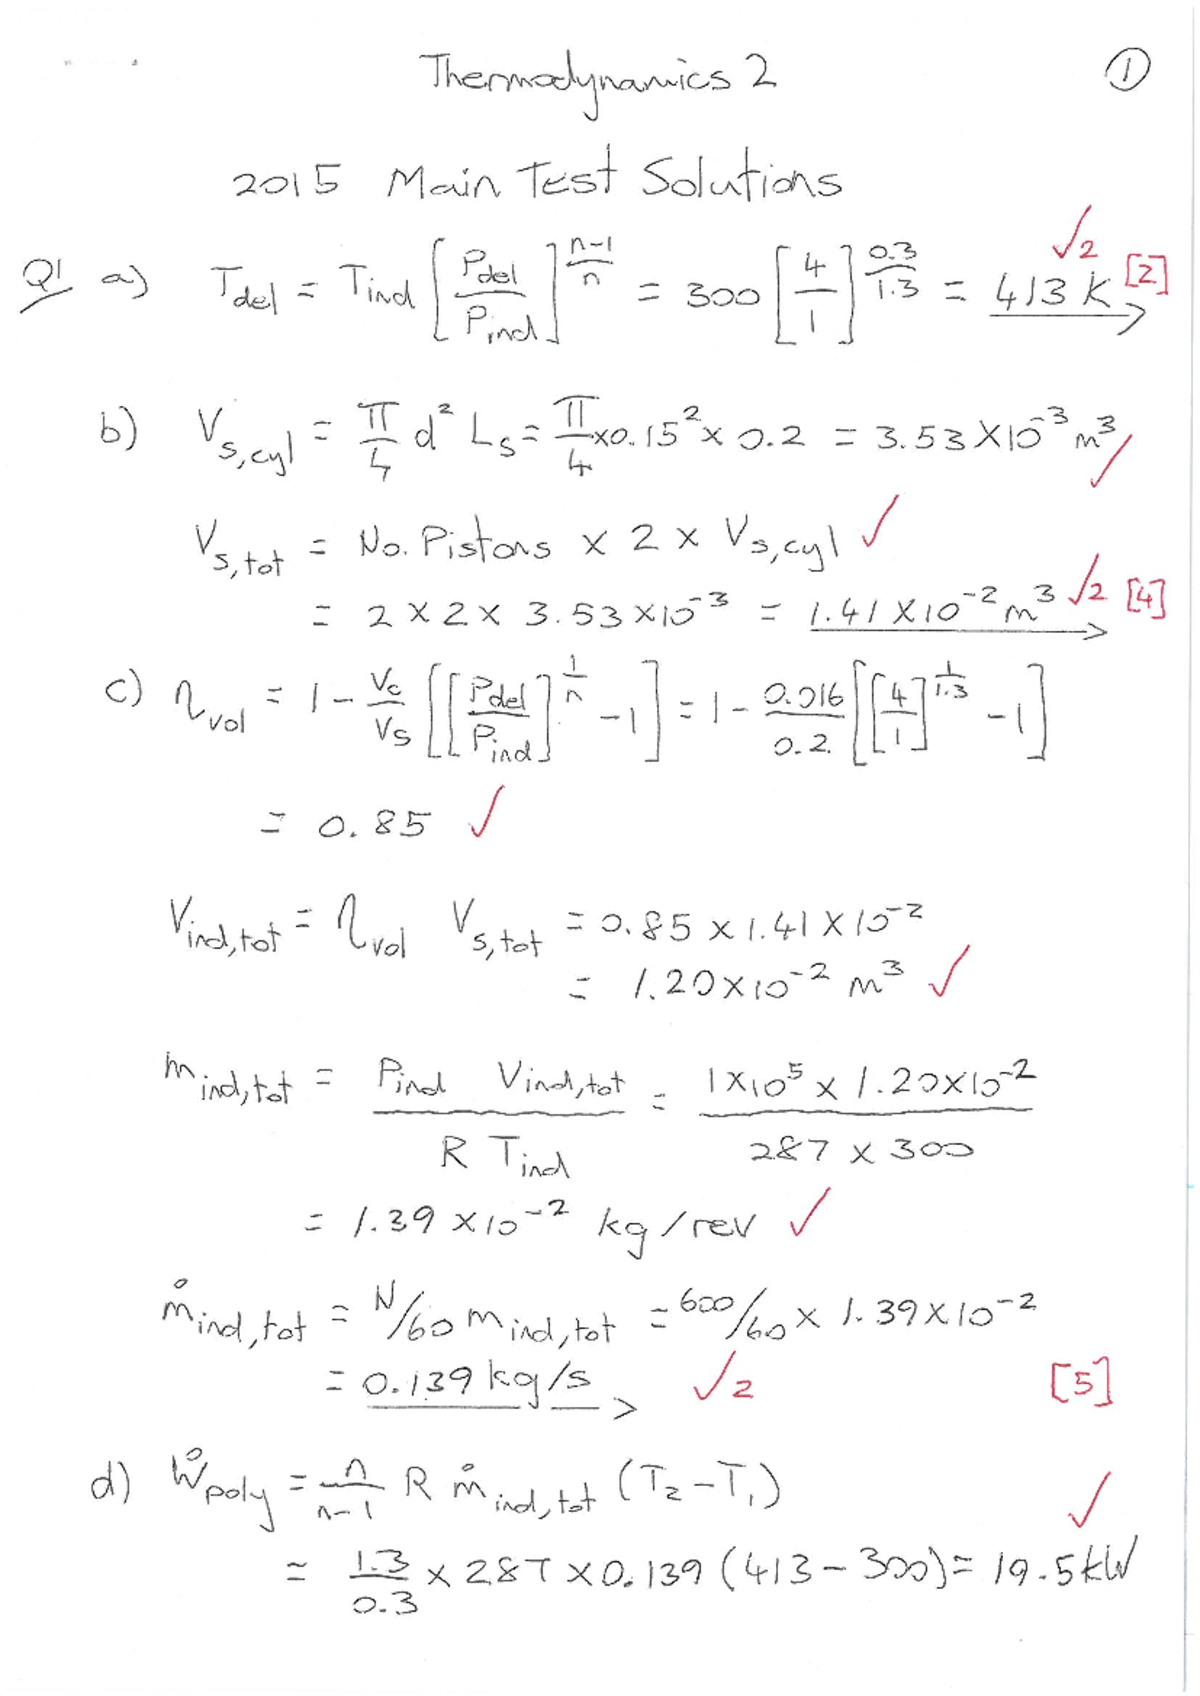 Thermodynamics 2 ①
2015 Main Test Solutions
Q1 a) T_del = T_ind [P_del / P_ind]^((n-1)/n) = 300 [4/1]^(0.3/1.3) = 413 K ✓2 [2]
b) V_s,cyl = π/4 d² L_s = π/4 × 0.15² × 0.2 = 3.53 × 10⁻³ m³ ✓
V_s,tot = No. Pistons × 2 × V_s,cyl ✓
= 2 × 2 × 3.53 × 10⁻³ = 1.41 × 10⁻² m³ ✓2 [4]
c) η_vol = 1 - V_c/V_s [[P_del / P_ind]^(1/n) - 1] = 1 - 0.016/0.2 [[4/1]^(1/1.3) - 1]
= 0.85 ✓
V_ind,tot = η_vol V_s,tot = 0.85 × 1.41 × 10⁻²
= 1.20 × 10⁻² m³ ✓
m_ind,tot = P_ind V_ind,tot / R T_ind = 1×10⁵ × 1.20×10⁻² / 287 × 300
= 1.39 × 10⁻² kg/rev ✓
ṁ_ind,tot = N/60 m_ind,tot = 600/60 × 1.39 × 10⁻²
= 0.139 kg/s ✓2 [5]
d) Ẇ_poly = n/n-1 R ṁ_ind,tot (T₂ - T₁) ✓
= 1.3/0.3 × 287 × 0.139 (413 - 300) = 19.5 kW